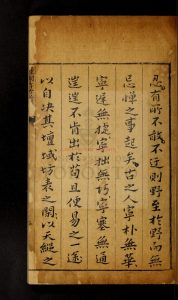 有所不不近則野至於野而無
忌憚之事起矣古之人寧朴無華
寧遲無捷寧拙無巧寧蹇無通
不肯出於苟且便易之一途
以自决其壇域坊表之閑以天繩之